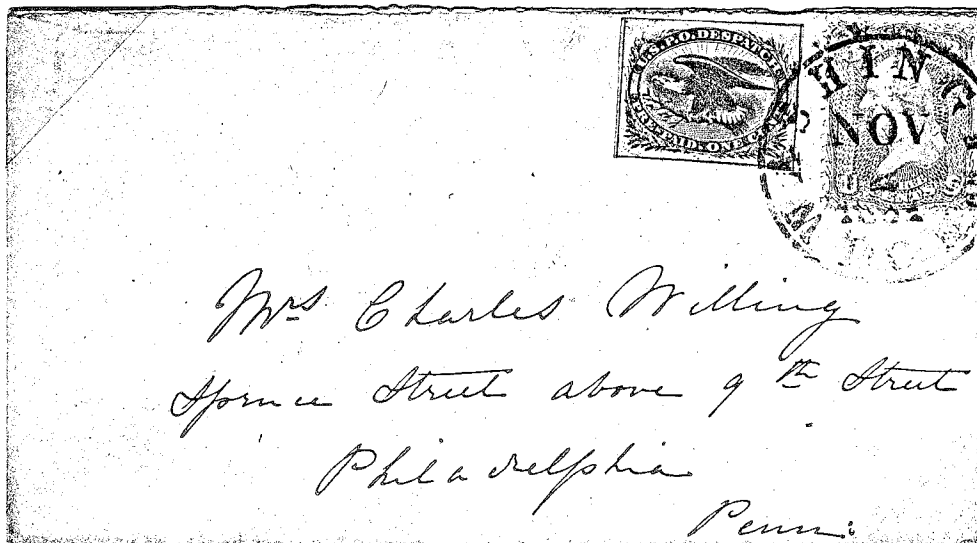 U.S.P.O.DESPATCH
PRE-PAID ONE CENT
HING
NOV
1861
U S
Mrs Charles Willing
Spruce Street above 9th Street
Philadelphia
Penn: